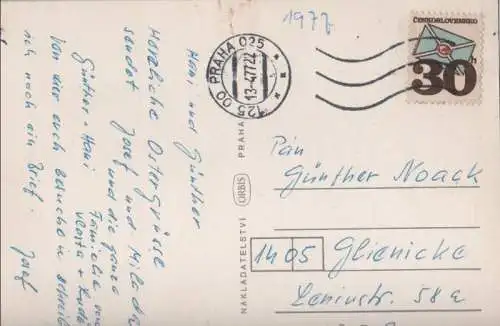 1977
Hani und Günther
Herzliche Ostergrüße
sendet Josef und Milada
und die ganze
Familie von
Vlasta +
Günther + Hani
von hier euch
ich noch ein Brief.
Josef
PRAHA 025
13.4.77-22
125 00
ČESKOSLOVENSKO
30h
NAKLADATELSTVÍ ORBIS PRAHA
Pán
Günther Noack
1405 Glienicke
Leninstr. 58a